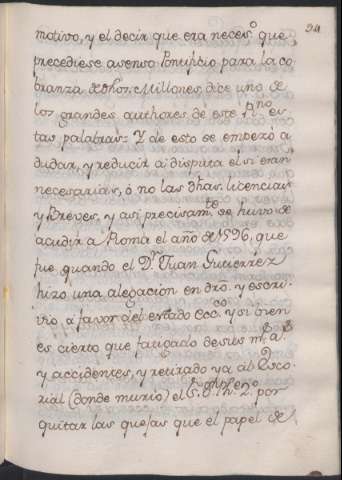 94
motivo, y el decir que era neces.o que
precediese asenso Pontificio para la co
branza de dhos. Millones, dice uno de
los grandes authores de este R.no es
tas palabras: Y de esto se empezó a
dudar, y reducir a disputa el si eran
necesarias, ó no las dhas. licencias
y Breves, y asi precisam.te se huvo de
acudir a Roma el año de 1596, que
fue quando el D.r Juan Gutierrez
hizo una alegacion en dro. y escri
vio a favor del estado Ecc.co y si bien
es cierto que fatigado de sus m.s a.s
y accidentes, y retirado ya al Esco
rial (donde murio) el S.or Dn. Phe. 2.o por
quitar las quejas que el papel de